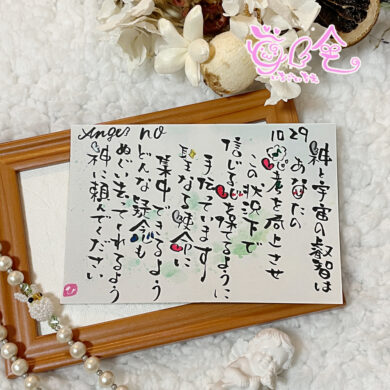 Angel no 1029
神と宇宙の叡智は
あなたの
思考を向上させ
この状況下で
信じる心を保てるように
手伝っています
聖なる使命に
集中できるよう
どんな疑念も
ぬぐいさってくれるよう
神に頼んでください